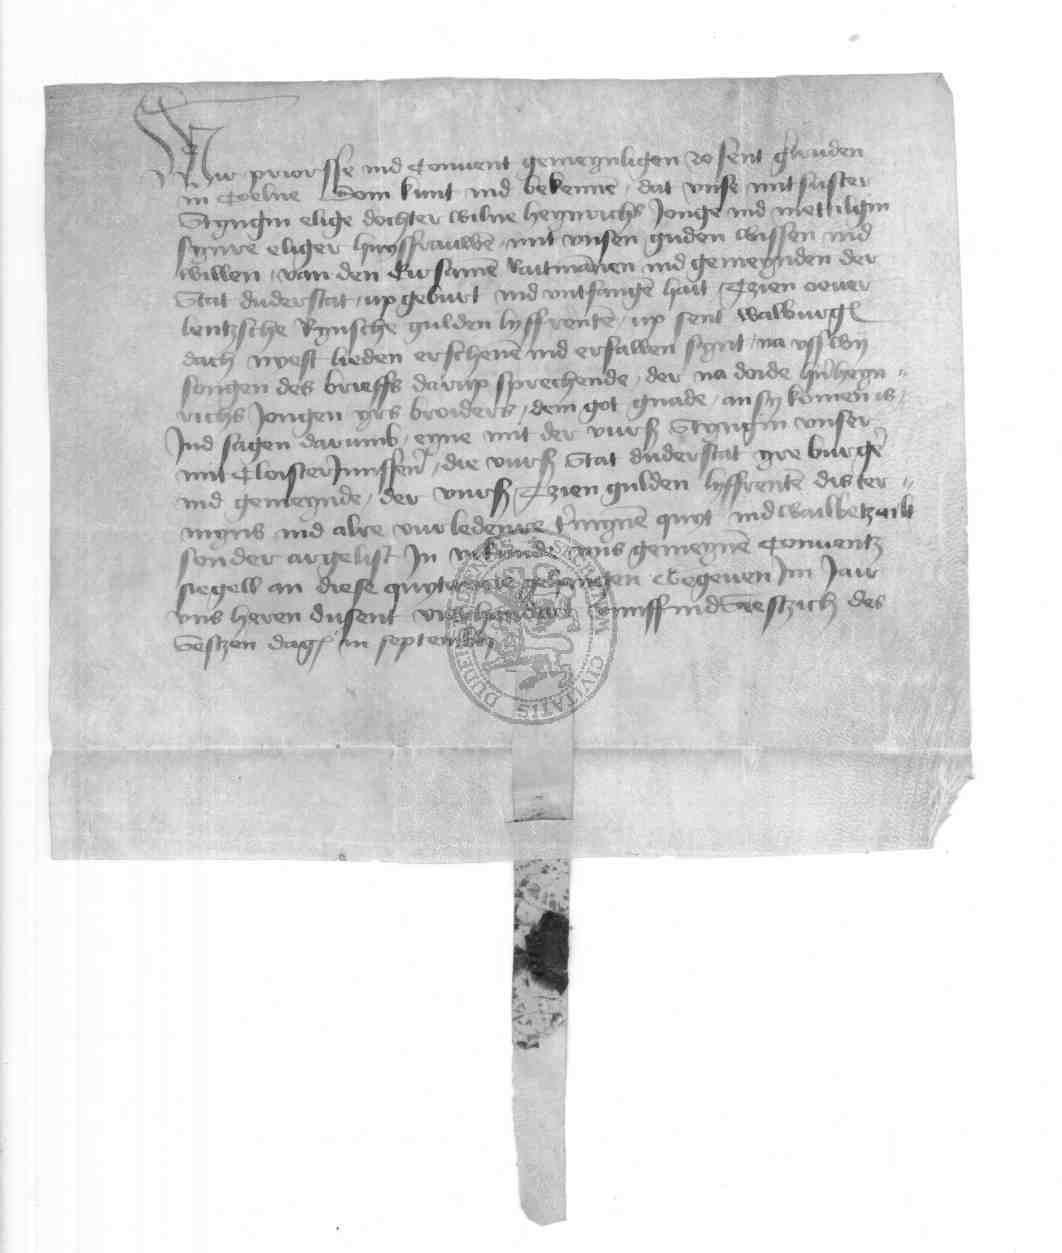 Wir priorsse ind Convent gemeynligen zo sent Gertruden
in Coelne Doin kunt ind bekennen / dat unse mit suster
Styngin elige dochter wilne heynrichs Jonge ind mettilgin
synre eliger huysfrauwen / mit unsen guden wissen ind
willen / van den Eirsamen Raitmannen ind gemeynden der
Stat duderstat / up geburt ind untfangen hait / Tzien oever
lentzsche Rynsche gulden lyffrenten / up sent walburgen
dach nyest lieden erschenen ind erfallen synt / na ussWy
songen des brieffs darup sprechende / der na doide heyn
richs Jongen yrs broiders / dem got gnade / an sy komen is /
Ind sagen darumb / eyne mit der vurß Styngin unser
mit Cloister Jnnffen / die vurß Stat duderstat yre burger
ind gemeynde / der vurß / Tzien gulden lyffrenten dis ter
myns ind alre vurledenre termynen quyt ind wailbetzailt
sonder argelist In urkunde uns gemeynen Conventz
siegell an diese quytancie gehangen Gegeven Im Jair
uns heren dusent vierhundert vunff ind Seestzich des
Seszen dags in septembri
DUDERSTADENSIS CIVITATIS